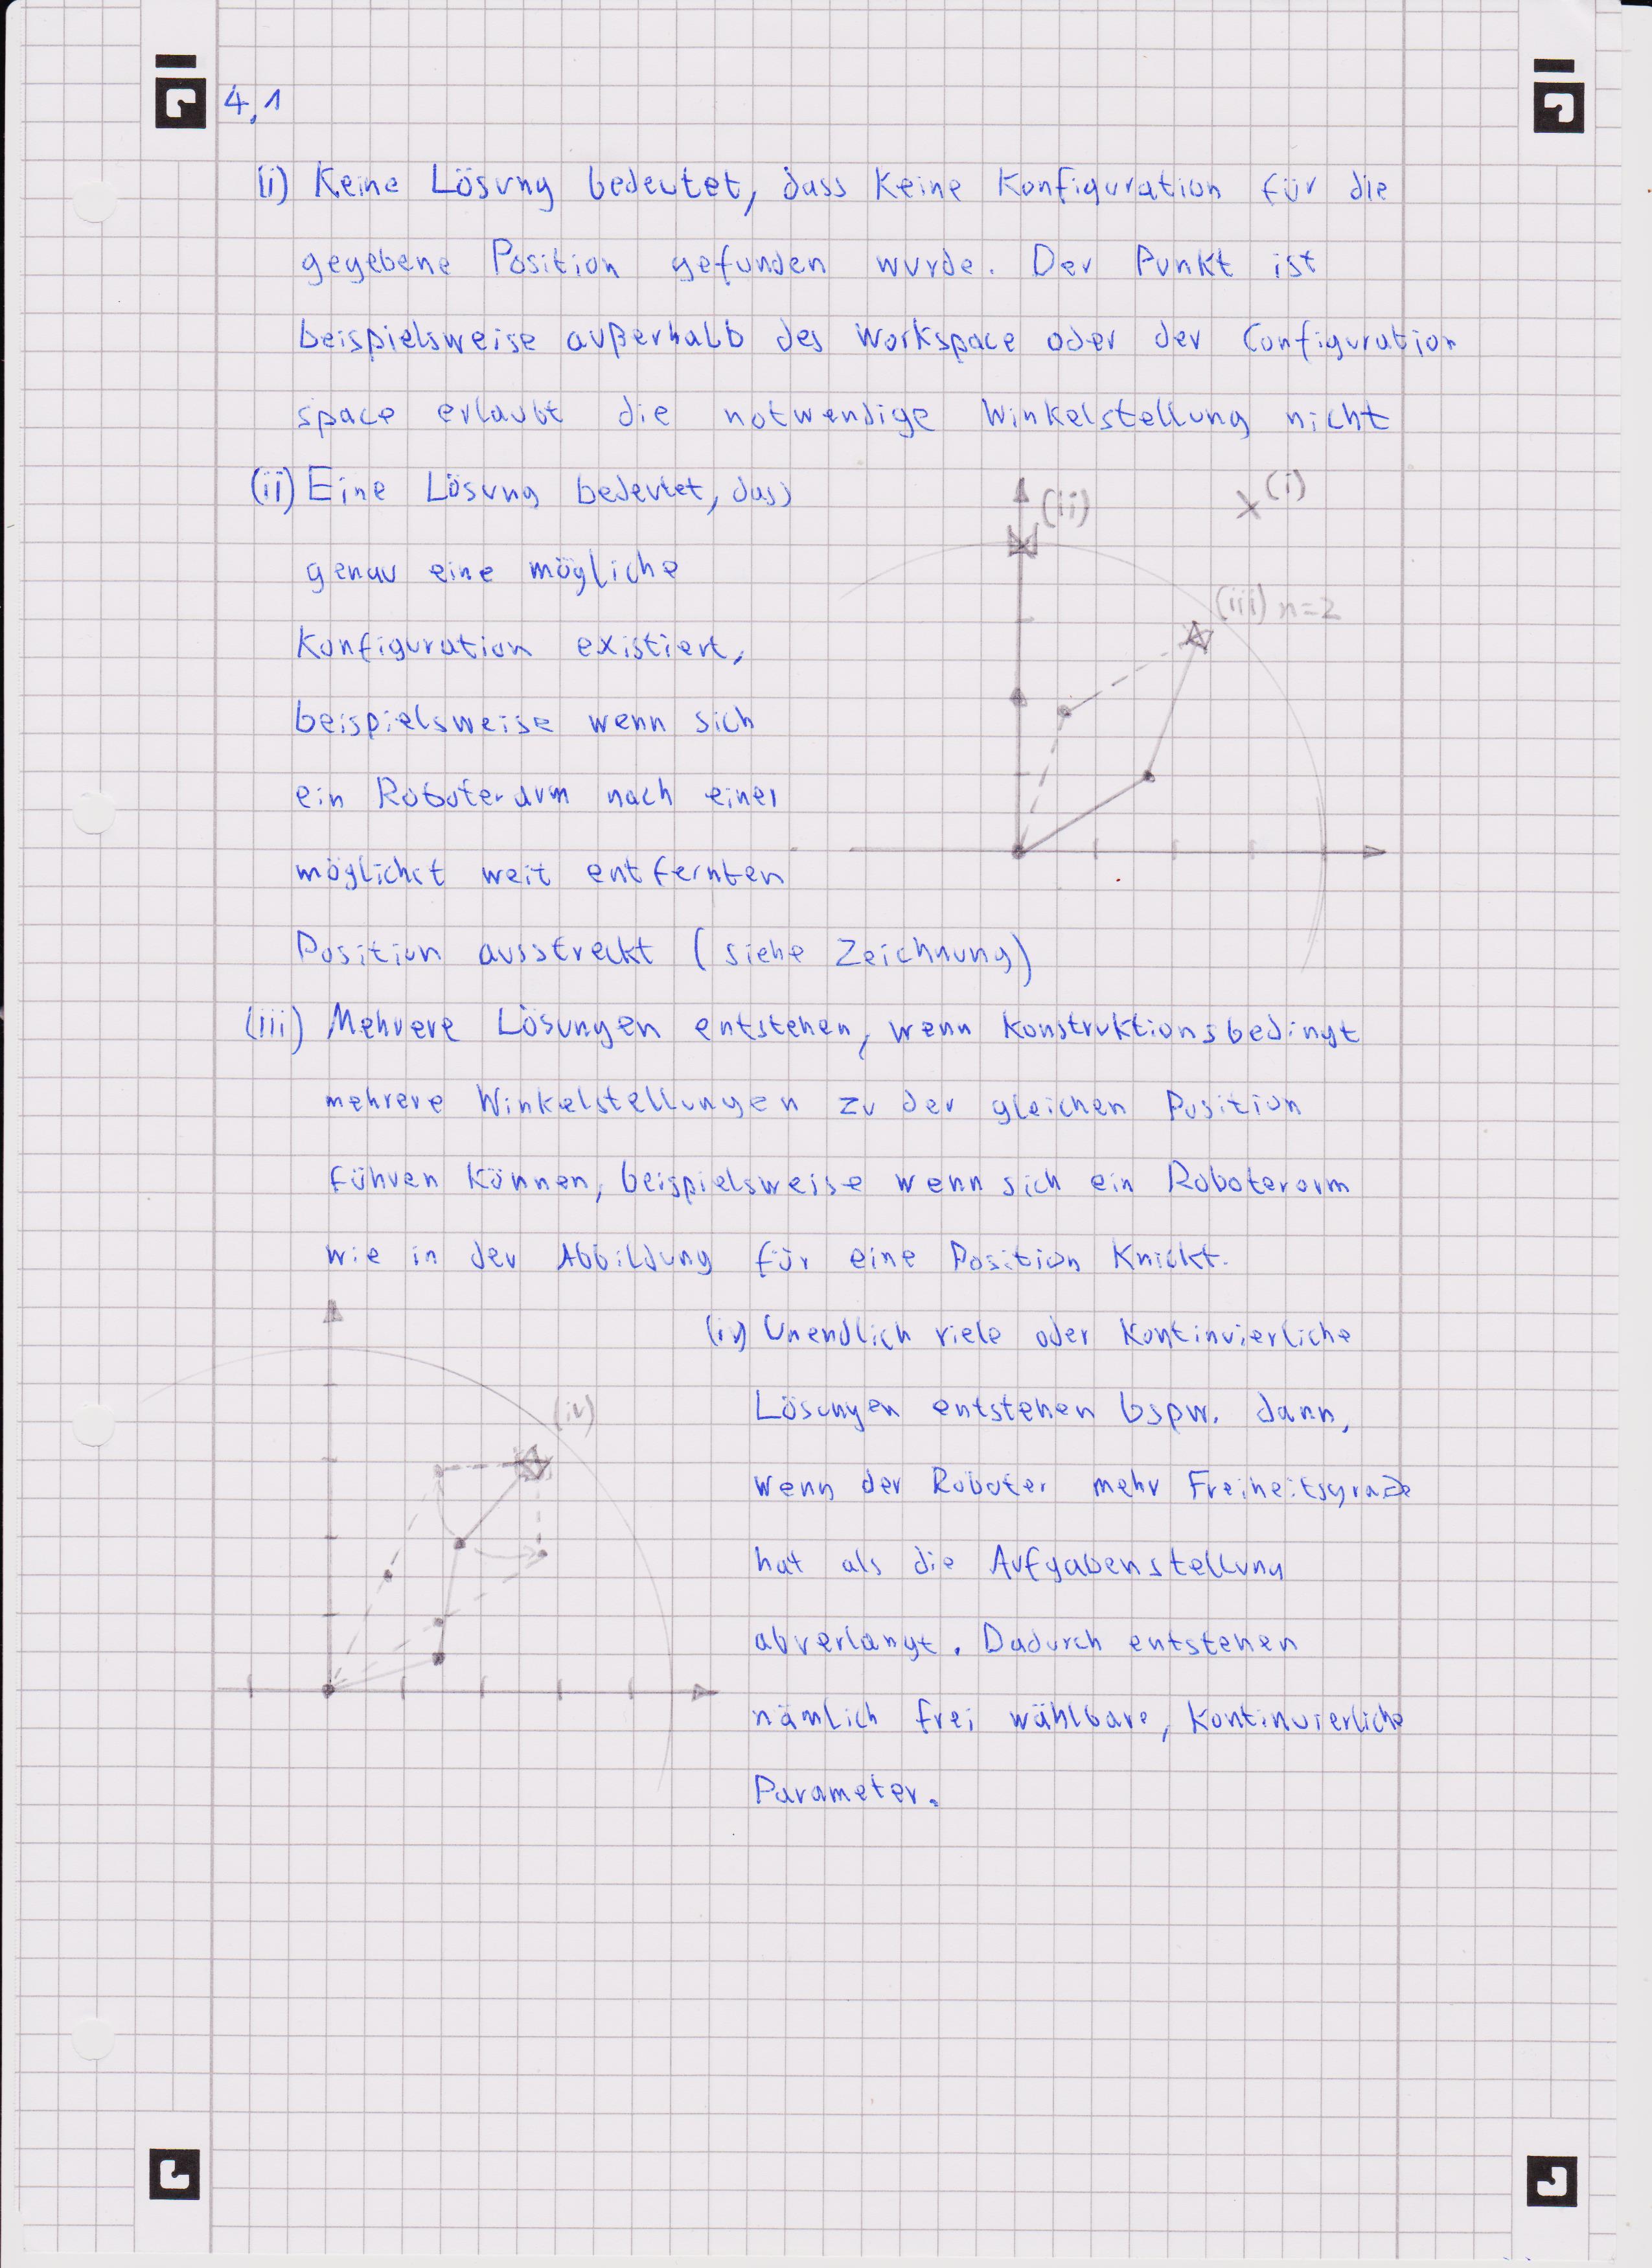 4,1
(i) Keine Lösung bedeutet, dass keine Konfiguration für die
gegebene Position gefunden wurde. Der Punkt ist
beispielsweise außerhalb des Workspace oder der Configuration
space erlaubt die notwendige Winkelstellung nicht
(ii) Eine Lösung bedeutet, dass
genau eine mögliche
Konfiguration existiert,
beispielsweise wenn sich
ein Roboterarm nach einer
möglichst weit entfernten
Position ausstreckt (siehe Zeichnung)
(i)
(ii)
(iii) n=2
(iii) Mehrere Lösungen entstehen, wenn konstruktionsbedingt
mehrere Winkelstellungen zu der gleichen Position
führen können, beispielsweise wenn sich ein Roboterarm
wie in der Abbildung für eine Position knickt.
(iv) Unendlich viele oder kontinuierliche
Lösungen entstehen bspw. dann,
wenn der Roboter mehr Freiheitsgrade
hat als die Aufgabenstellung
abverlangt. Dadurch entstehen
nämlich frei wählbare, kontinuierliche
Parameter.
(iv)